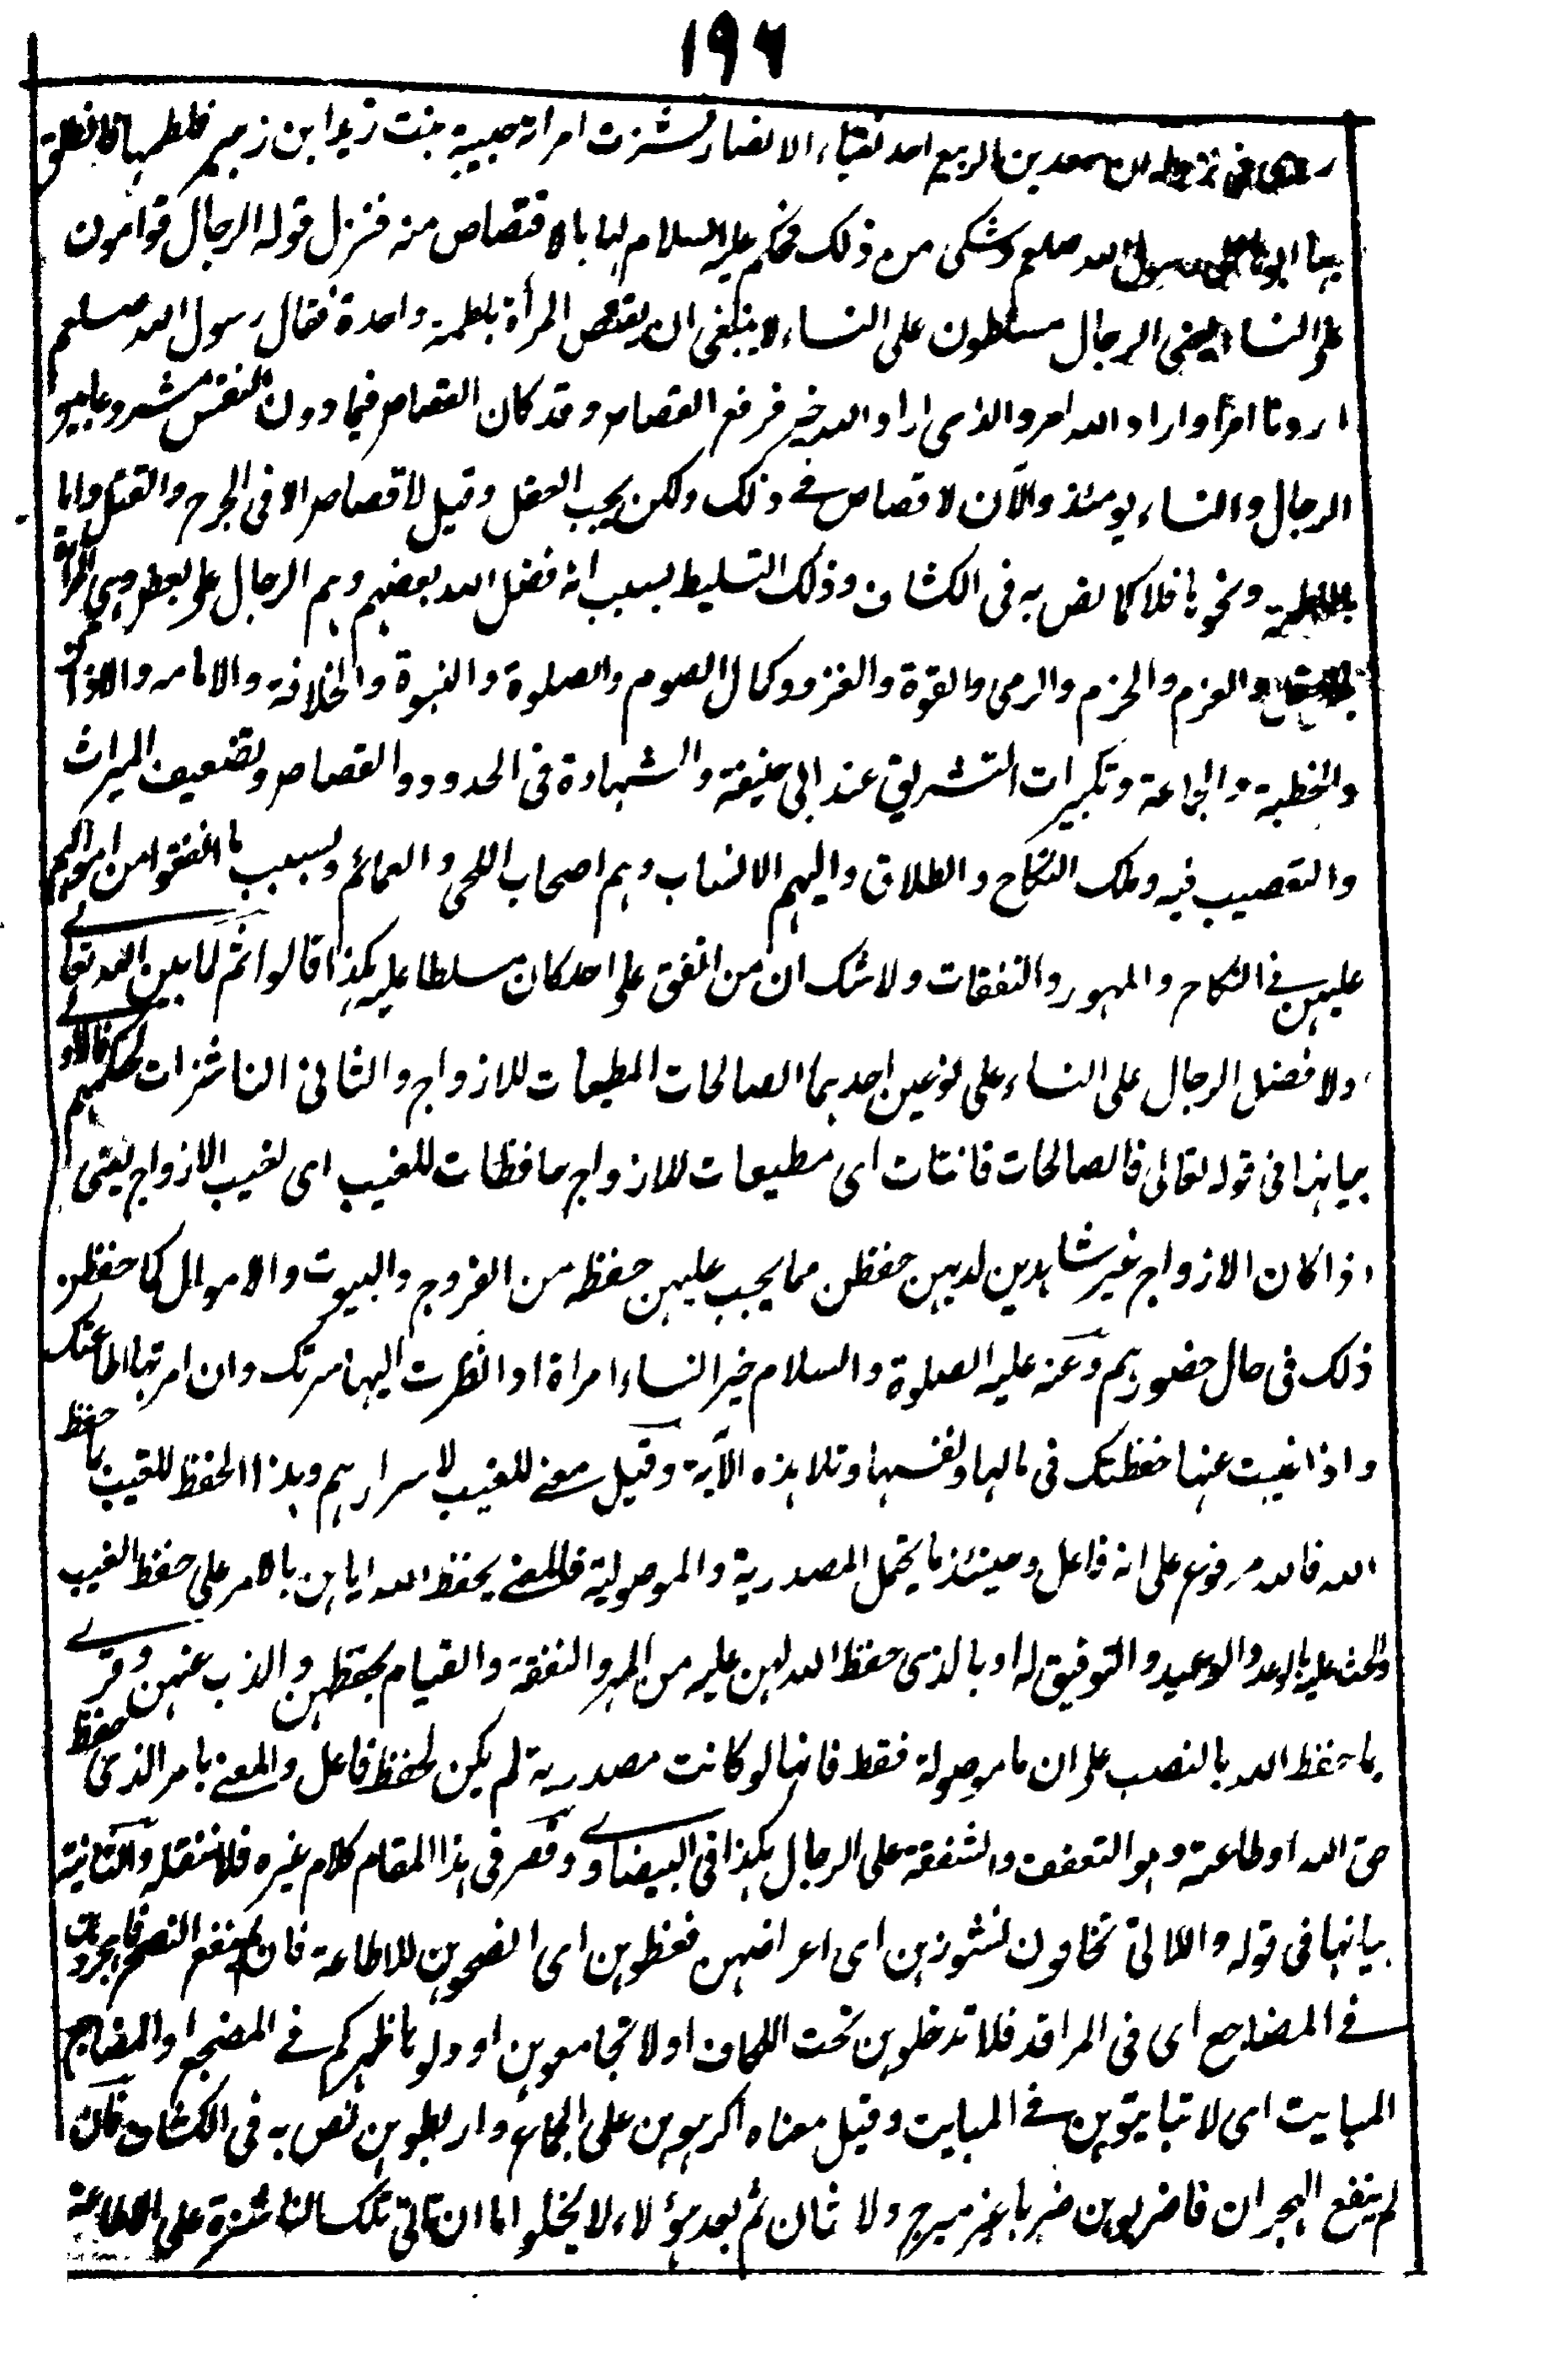 ١٩٦
روى فى نزوله ان سعد بن الربيع احد نقباء الانصار نشزت امراته حبيبة بنت زيد ابن زهير فلطمها فانطلق
بها ابوها الى رسول الله صلعم وشكى من ذلك فحكم عليه السلام لها بالاقتصاص منه فنزل قوله الرجال قوامون
على النساء يعنى الرجال مسلطون على النساء لا ينبغى ان يقتص المرأة بلطمة واحدة فقال رسول الله صلعم
اردنا امرا واراد الله امر والذى اراد الله خير فرفع القصاص وقد كان القصاص فيما دون النفس مشروعا بين
الرجال والنساء يومئذ والآن لا قصاص فى ذلك ولكن يجب العقل وقيل لا قصاص الا فى الجرح والقتل واما
اللطمة ونحوها فلا كما نص به فى الكشاف وذلك التسليط بسبب انه فضل الله بعضهم وهم الرجال على بعض وهى المرأة
والعزم والحزم والرمى والقوة والغزو وكمال الصوم والصلوة والنبوة والخلافة والامامه والاذان
والخطبة والجماعة وتكبيرات التشريق عند ابى حنيفة والشهادة فى الحدود والقصاص وتضعيف الميراث
والتعصيب فيه وملك النكاح والطلاق واليهم الانساب وهم اصحاب اللحى والعمائم وبسبب ما انفقوا من اموالهم
عليهن فى النكاح والمهور والنفقات ولا شك ان من انفق على احد كان مسلطا عليه هكذا قالوا ثم لما بين الله تعالى
اولا فضل الرجال على النساء على نوعين احدهما الصالحات المطيعات للازواج والثانى الناشزات لحكمهم فالاولى
بيانها فى قوله تعالى فالصالحات قانتات اى مطيعات للازواج حافظات للغيب اى لغيب الازواج يعنى
اذا كان الازواج غير شاهدين لديهن حفظن مما يجب عليهن حفظه من الفروج والبيوت والاموال كما حفظن
ذلك فى حال حضورهم وعنه عليه الصلوة والسلام خير النساء امراة اذا نظرت اليها سرتك وان امرتها اطاعتك
واذا غبت عنها حفظتك فى مالها ونفسها وتلا هذه الآية وقيل معنى للغيب لاسرارهم وهذا الحفظ للغيب بما حفظ
الله فالله مرفوع على انه فاعل وحينئذ ما يحتمل المصدرية والموصولية فالمعنى بحفظ الله اياهن بالامر على حفظ الغيب
والحث عليه بالوعد والوعيد والتوفيق له او بالذى حفظ الله لهن عليه من المهر والنفقة والقيام بحفظهن والذب عنهن وقرئ
بما حفظ الله بالنصب على ان ما موصولة فقط فانها لو كانت مصدرية لم يكن لحفظ فاعل والمعنى بامر الذى حفظ
حق الله او طاعته وهو التعفف والشفقة على الرجال هكذا فى البيضاوى وقصر فى هذا المقام كلام غيره فلا ننقله والثانية
بيانها فى قوله واللاتى تخافون نشوزهن اى اعراضهن فعظوهن اى انصحوهن للاطاعة فان لم ينفع النصح فاهجروهن
فى المضاجع اى فى المراقد فلا تدخلوهن تحت اللحاف او لا تجامعوهن او ولوا ظهركم فى المضجع او المضاجع
المبايت اى لا تبايتوهن فى المبايت وقيل معناه اكرهوهن على الجماع واربطوهن نص به فى الكشاف فان
لم ينفع الهجران فاضربوهن ضربا غير مبرح ولا شان ثم بعد هؤلاء لا يخلو اما ان تاتى تلك الناشزة على الاطاعة